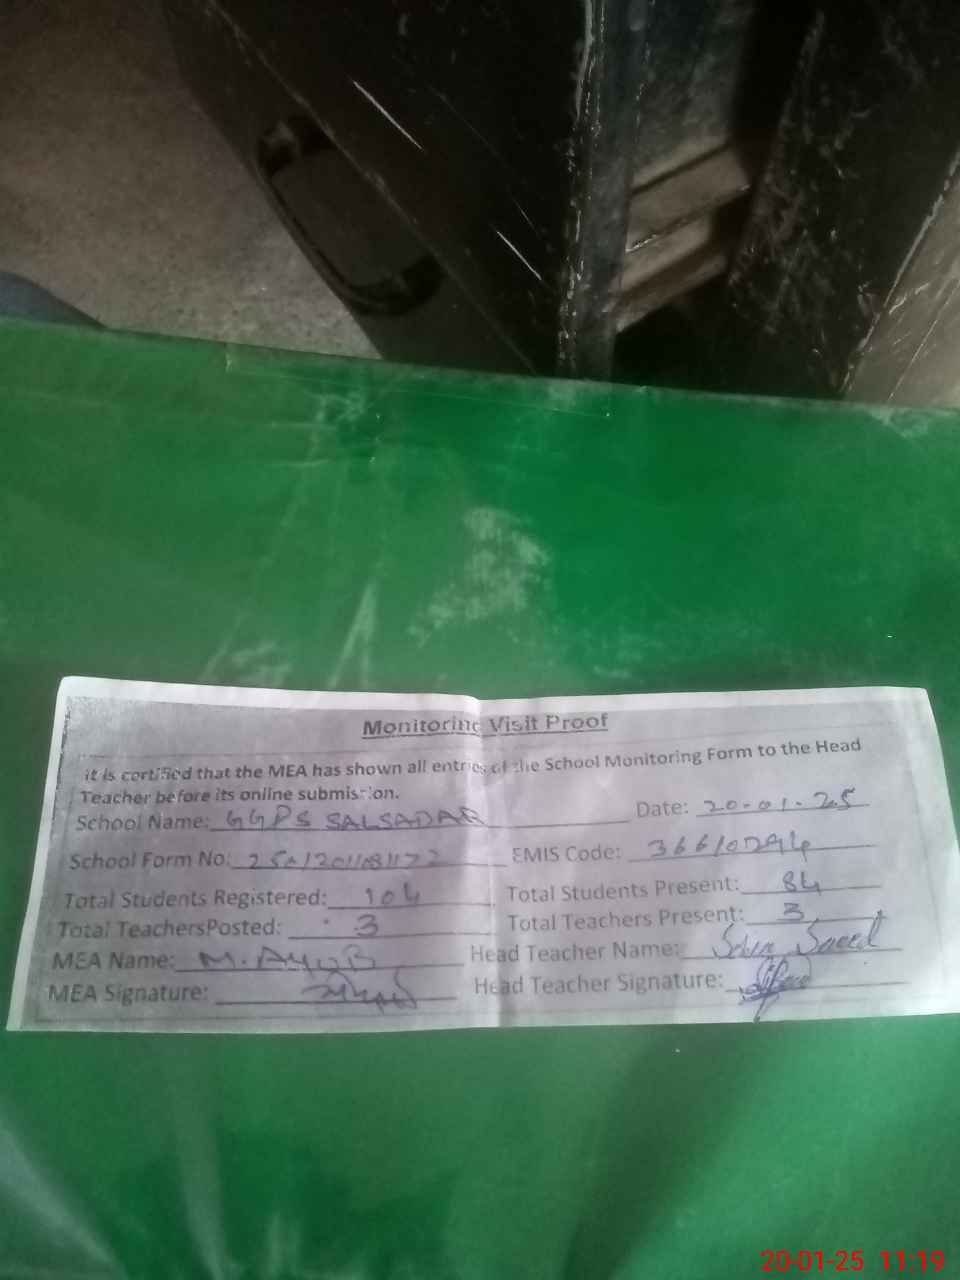 Monitoring Visit Proof
it is certified that the MEA has shown all entries of the School Monitoring Form to the Head
Teacher before its online submission.
School Name: GGPS SALSADAR Date: 20-01-25
School Form No: EMIS Code: 36610294
Total Students Registered: 104 Total Students Present: 84
Total TeachersPosted: 3 Total Teachers Present: 3
MEA Name: M. AYUB Head Teacher Name: Saeed
MEA Signature: Head Teacher Signature:
20-01-25 11:19